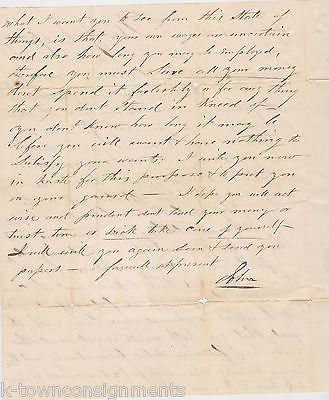 what I want you to see from this State of
things, is that, your own wages are uncertain
and also how long you may be employed,
Therefore you must Save all your money
dont Spend it foolishly or for any thing
that you dont Stand in kneed of
you dont know how long it may be
before you will want & have nothing to
Satisfy your wants, I write you now
in haste for this purpose & to put you
on your guard — I hope you will act
wise and prudent dont lend your money or
trust take care of yourself
I will write you again Soon & Send you
papers — farewell at present
John
k-townconsignments